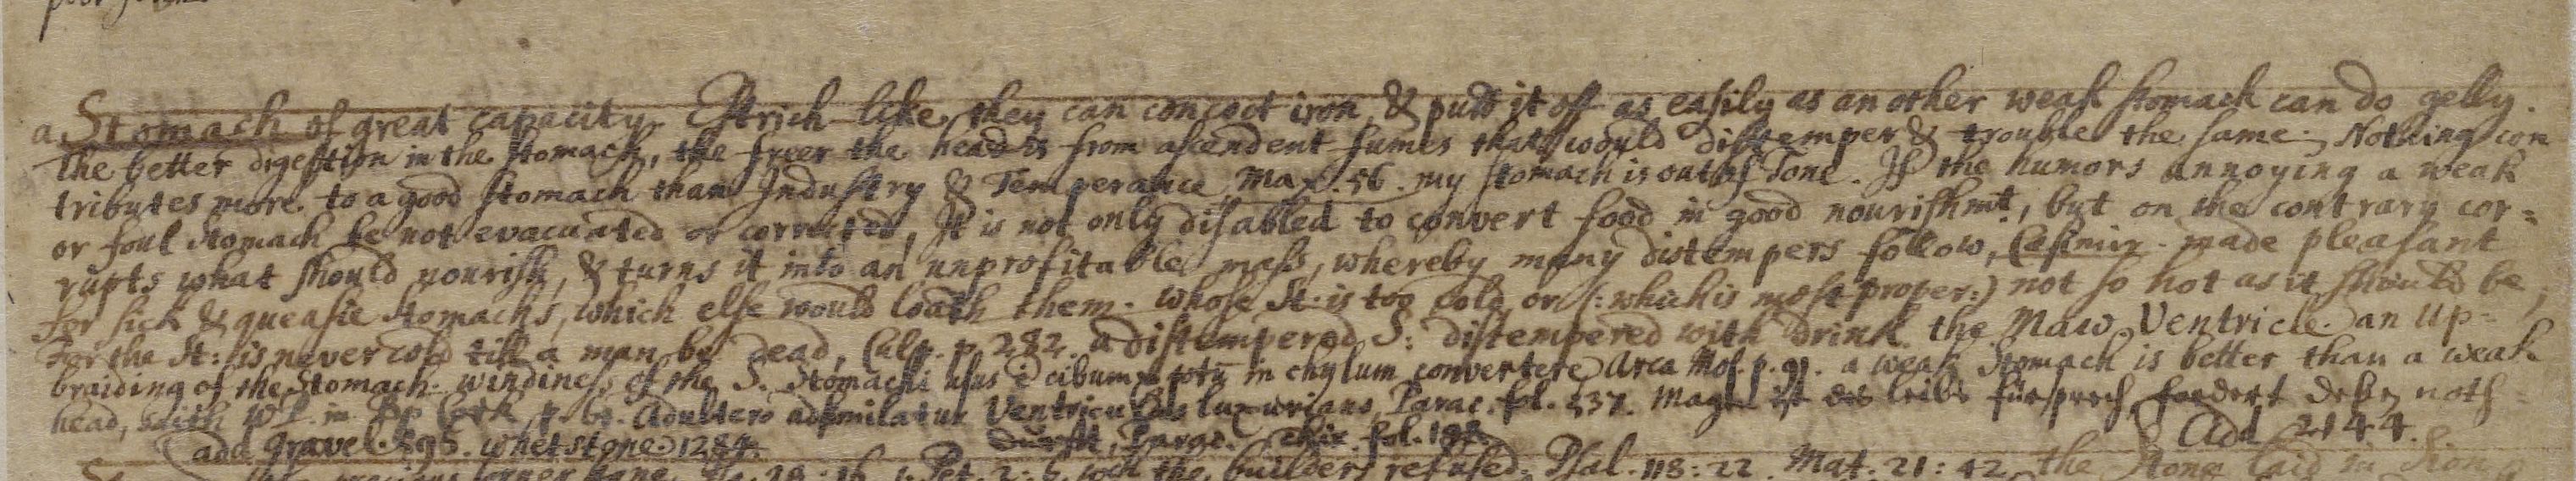 a Stomach of great capacity. Estrich-like, they can concoct iron, & putt it off as easily as an other weak stomack can do gelly.
The better digestion in the stomach, the freer the head is from ascendent fumes that would distemper & trouble the same. Nothing con
tributes more to a good stomach than Industry & Temperance Max. 56. my stomach is out of Tone. If the humors annoying a weak
or foul stomach be not evacuated or corrected, It is not only disabled to convert food in good nourishmt, but on the contrary cor=
rupts what should nourish, & turns it into an unprofitable mass, whereby many distempers follow, Casimir. made pleasant
for sick & queasie stomachs, which else would loath them. whose St. is too cold, or (: which is most proper:) not so hot as it should be,
For the St: is never cold till a man be dead, Culp. p. 282. a distempered S: distempered with drink. the Maw. Ventricle. an up=
braiding of the Stomach. windiness of the S. Stomachi usus ē cibum totū in chylum convertere Arca Mos. p. 91. a weak Stomach is better than a weak
head, saith in Bp p. Adultero adsimilatur Ventriculus luxurians, Parac. fol. 537. Magen ist des leibs fürsprech, fordert deßen noth=
add gravel 895. whetstone 1284. durfft, Parac. Chir. fol. Add 2144.
corner stone, 28:16. 1. Pet. 2: 6. the builders refused. Psal. 118:22. Mat. 21:42. the stone laid in Sion